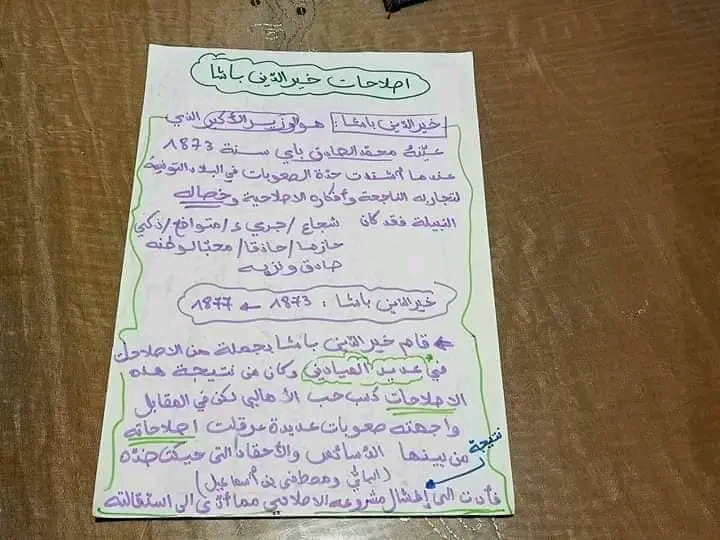 اصلاحات خير الدّين باشا
خير الدّين باشا : هو الوزير الأكبر الذي
عيّنهُ محمد الصادق باي سنة 1873
عندما اشتدت حدّة الصعوبات في البلاد التونسية
لتجاربه الناجعة وأفكاره الاصلاحية وخصاله
النبيلة فقد كان شجاع / جريء / متواضع / ذكي
حازما / حاذقا / محبّا لوطنه
صادق ونزيه
خير الدّين باشا : 1873 ← 1877
← قام خير الدّين باشا بجملة من الاصلاحات
في عديد الميادين وكان من نتيجة هذه
الاصلاحات كسب حب الأهالي لكن في المقابل
واجهته صعوبات عديدة عرقلت اصلاحاته
من بينها الدّسائس والأحقاد التي حيكت ضدّه
نتيجة
(الباي ومصطفى بن اسماعيل)
فأدت الى إفشال مشروعه الاصلاحي مما أدّى الى استقالته